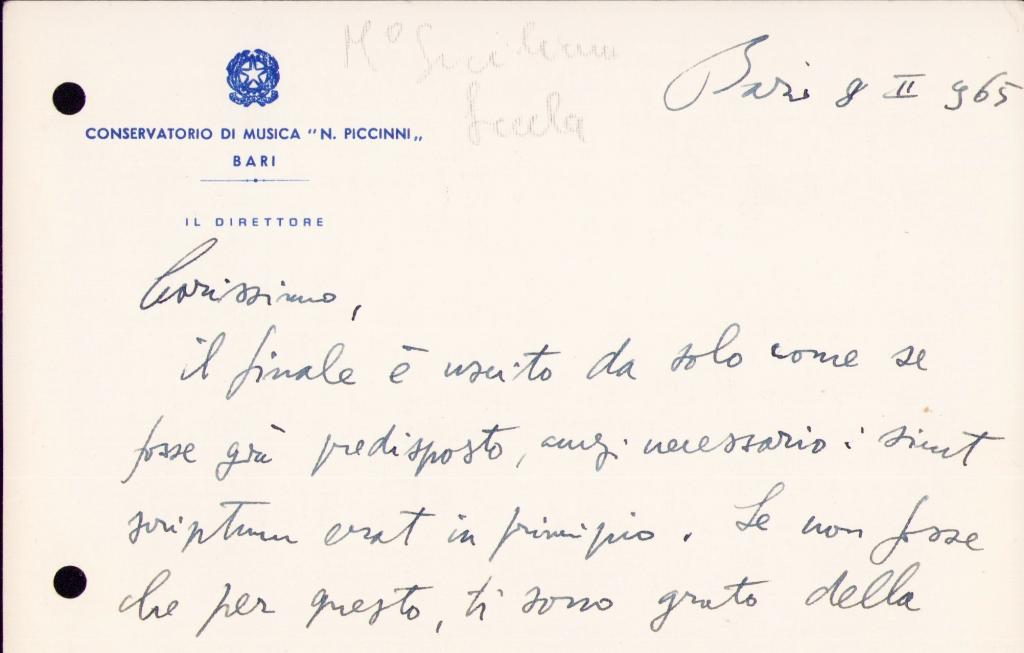 CONSERVATORIO DI MUSICA "N. PICCINNI„
BARI
IL DIRETTORE
Mº
Bari 8 II 965
Carissimo,
il finale è uscito da solo come se
fosse già predisposto, anzi necessario: sicut
scriptum erat in principio. Se non fosse
che per questo, ti sono grato della